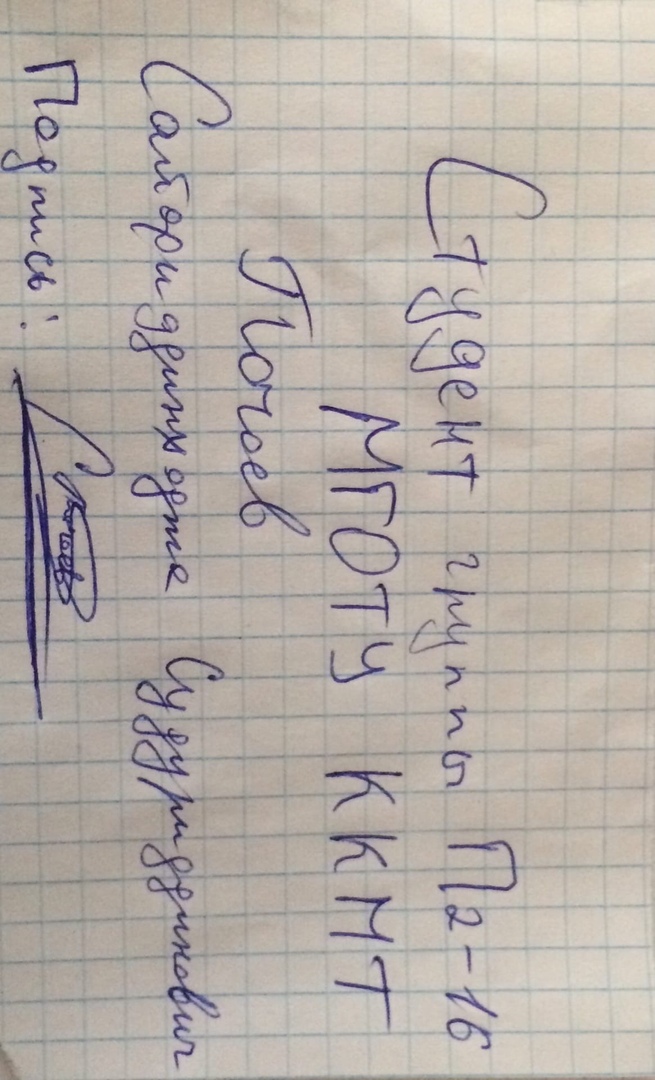 Студент группы П2-16
МГОТУ ККМТ
Почоев
Саториддинходжа Судуриддинович
Подпись: